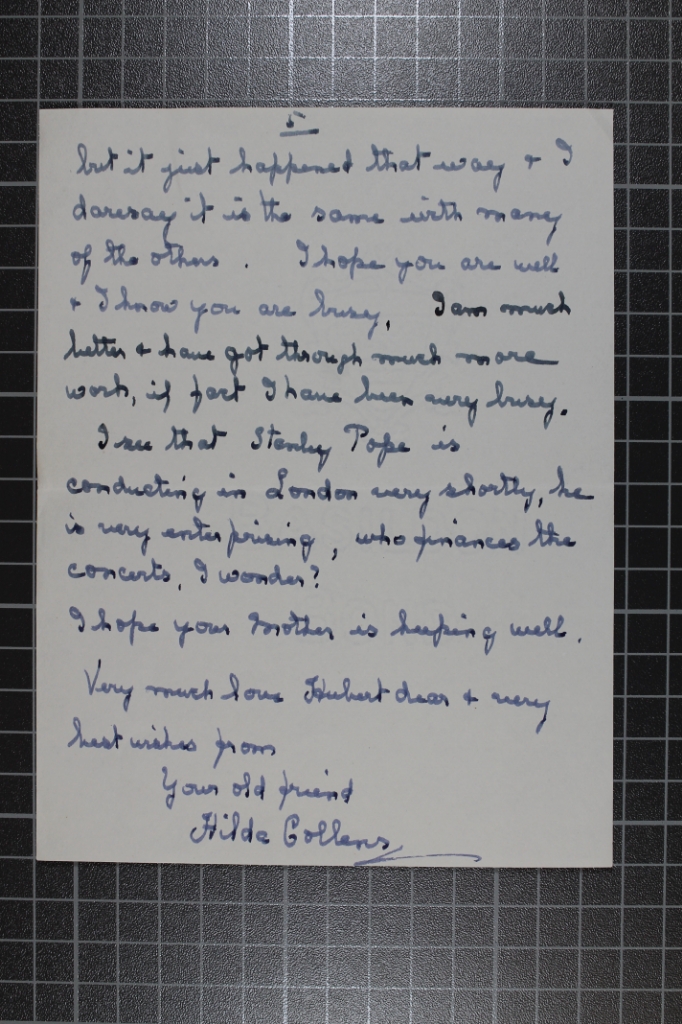 5
but it just happened that way & I
daresay it is the same with many
of the others. I hope you are well
& I know you are busy. I am much
better & have got through much more
work, if fact I have been very busy.
I see that Stanley Pope is
conducting in London very shortly, he
is very enterprising, who finances the
concerts, I wonder?
I hope your Mother is keeping well.
Very much love Hubert dear & very
best wishes from
Your old friend
Hilda Collens